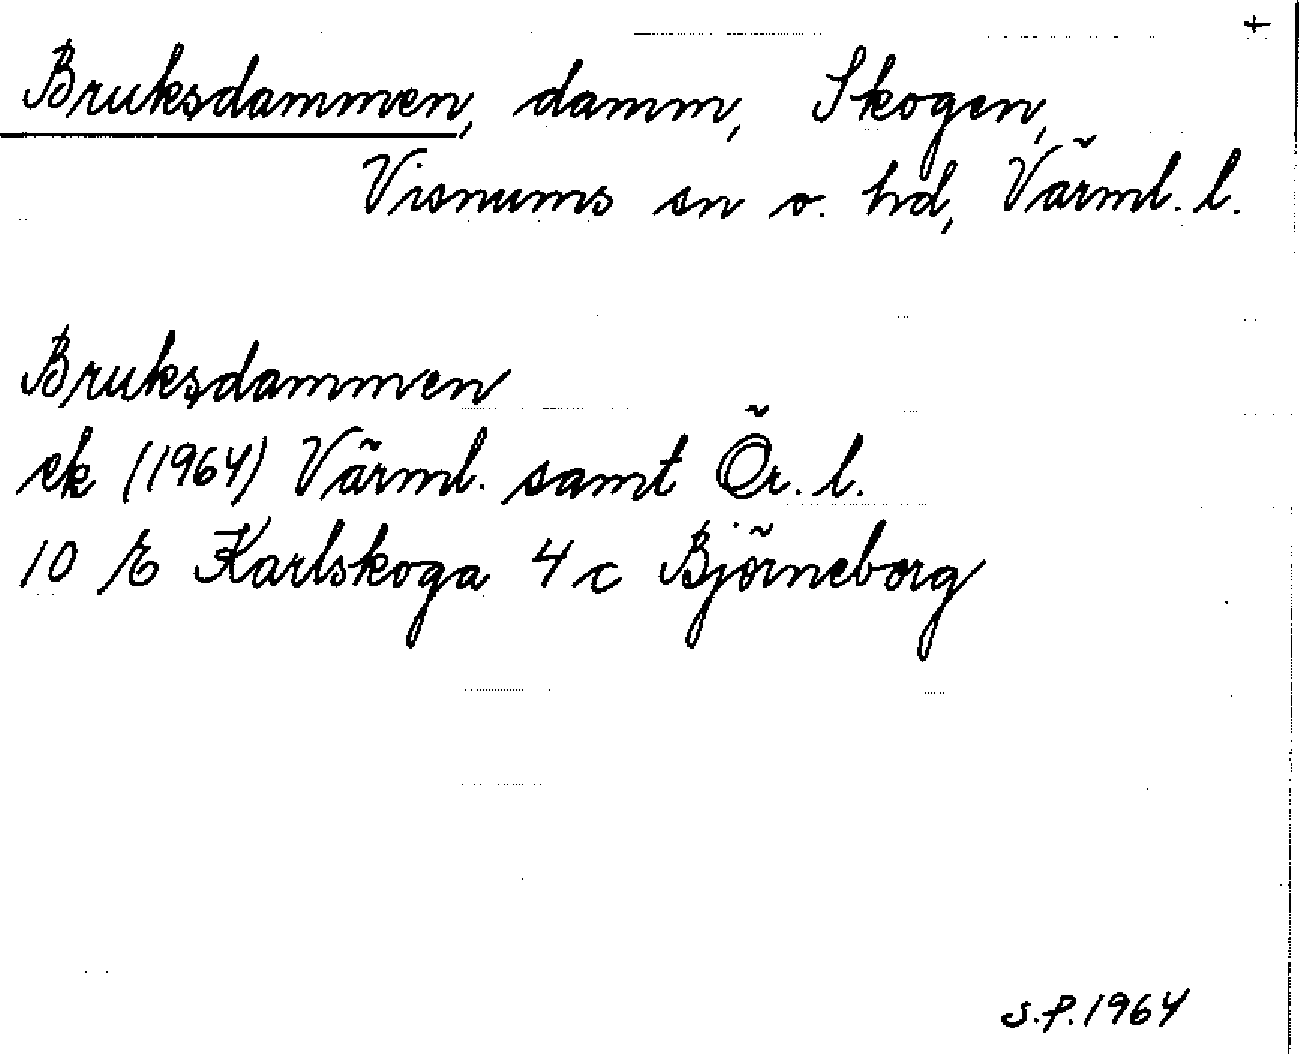 Bruksdammen, damm, Skogen,
Visnums sn o. hd, Värml. l.
Bruksdammen
ek (1964) Värml. samt Ör. l.
10 E Karlskoga 4 c Björneborg
S.P. 1964